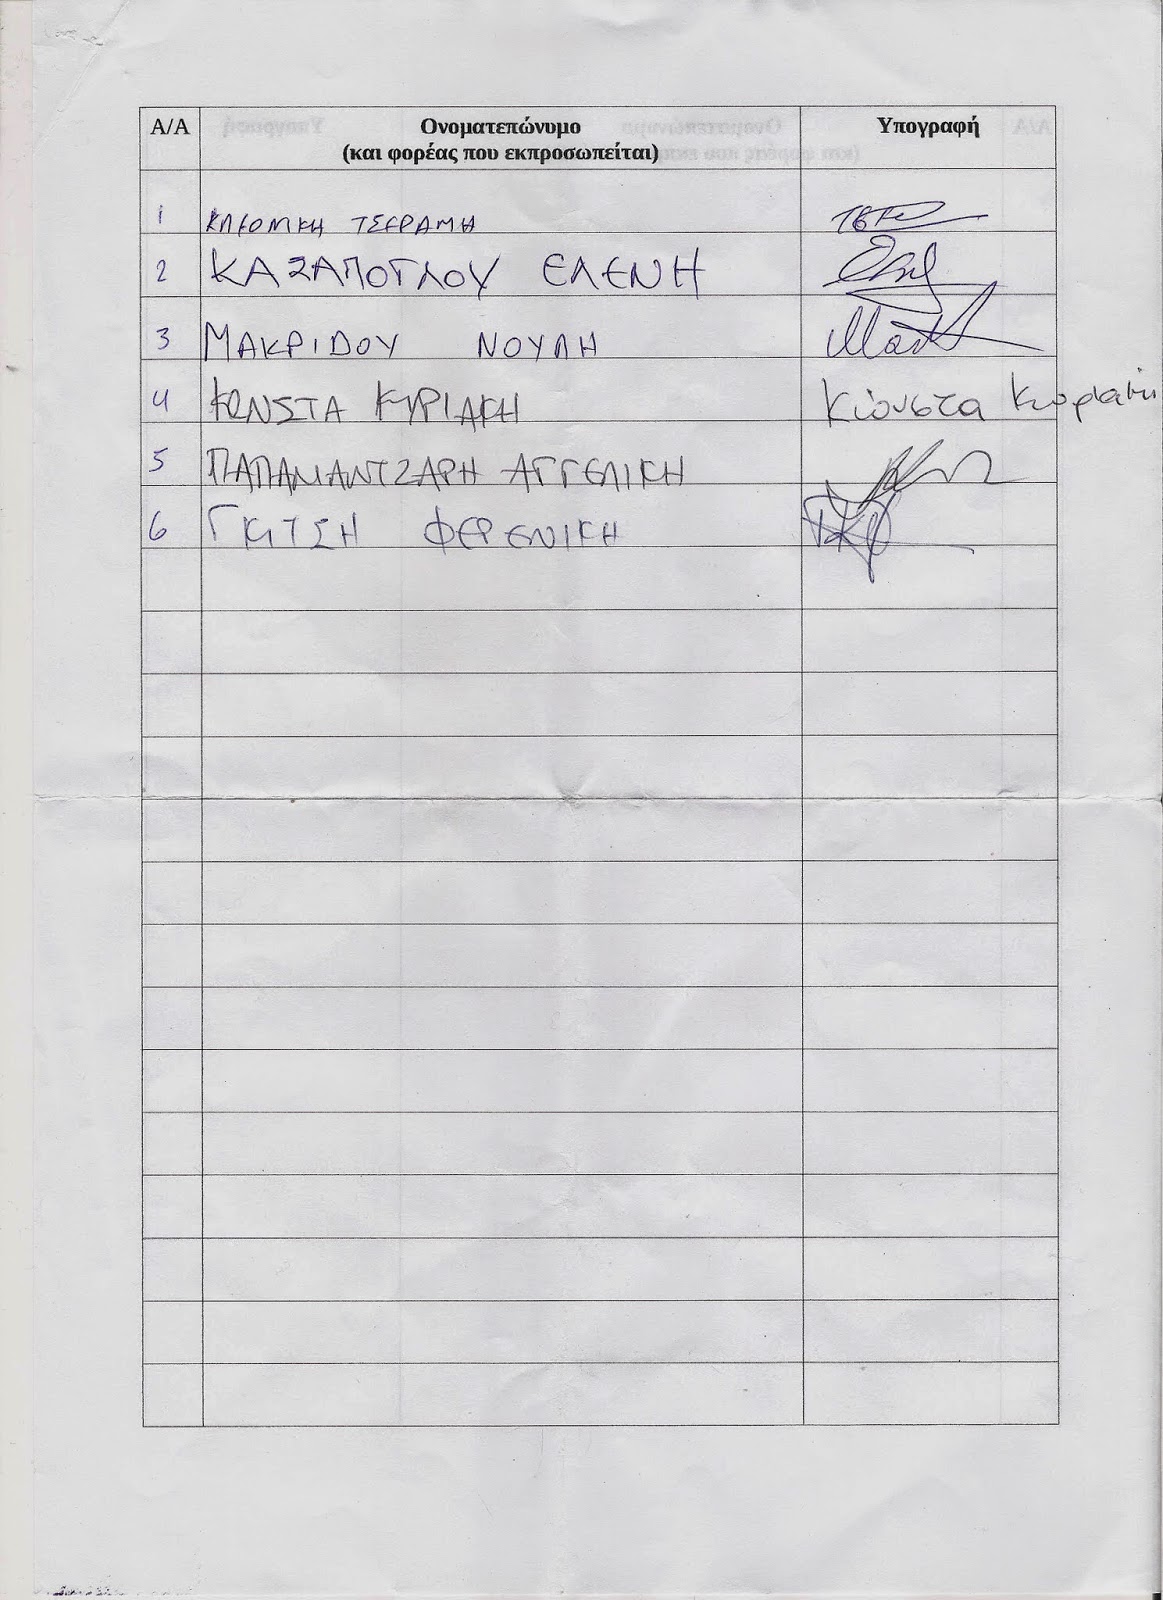 Α/Α Ονοματεπώνυμο Υπογραφή
(και φορέας που εκπροσωπείται)
1 ΚΛΕΟΝΙΚΗ ΤΣΕΓΡΑΜΗ
2 ΚΑΖΑΠΟΓΛΟΥ ΕΛΕΝΗ
3 ΜΑΚΡΙΔΟΥ ΝΟΥΛΗ
4 ΚΩΝΣΤΑ ΚΥΡΙΑΚΗ Κιουστα Κυριακη
5 ΠΑΠΑΜΑΝΤΖΑΡΗ ΑΓΓΕΛΙΚΗ
6 ΓΚΙΤΣΗ ΦΕΡΕΝΙΚΗ